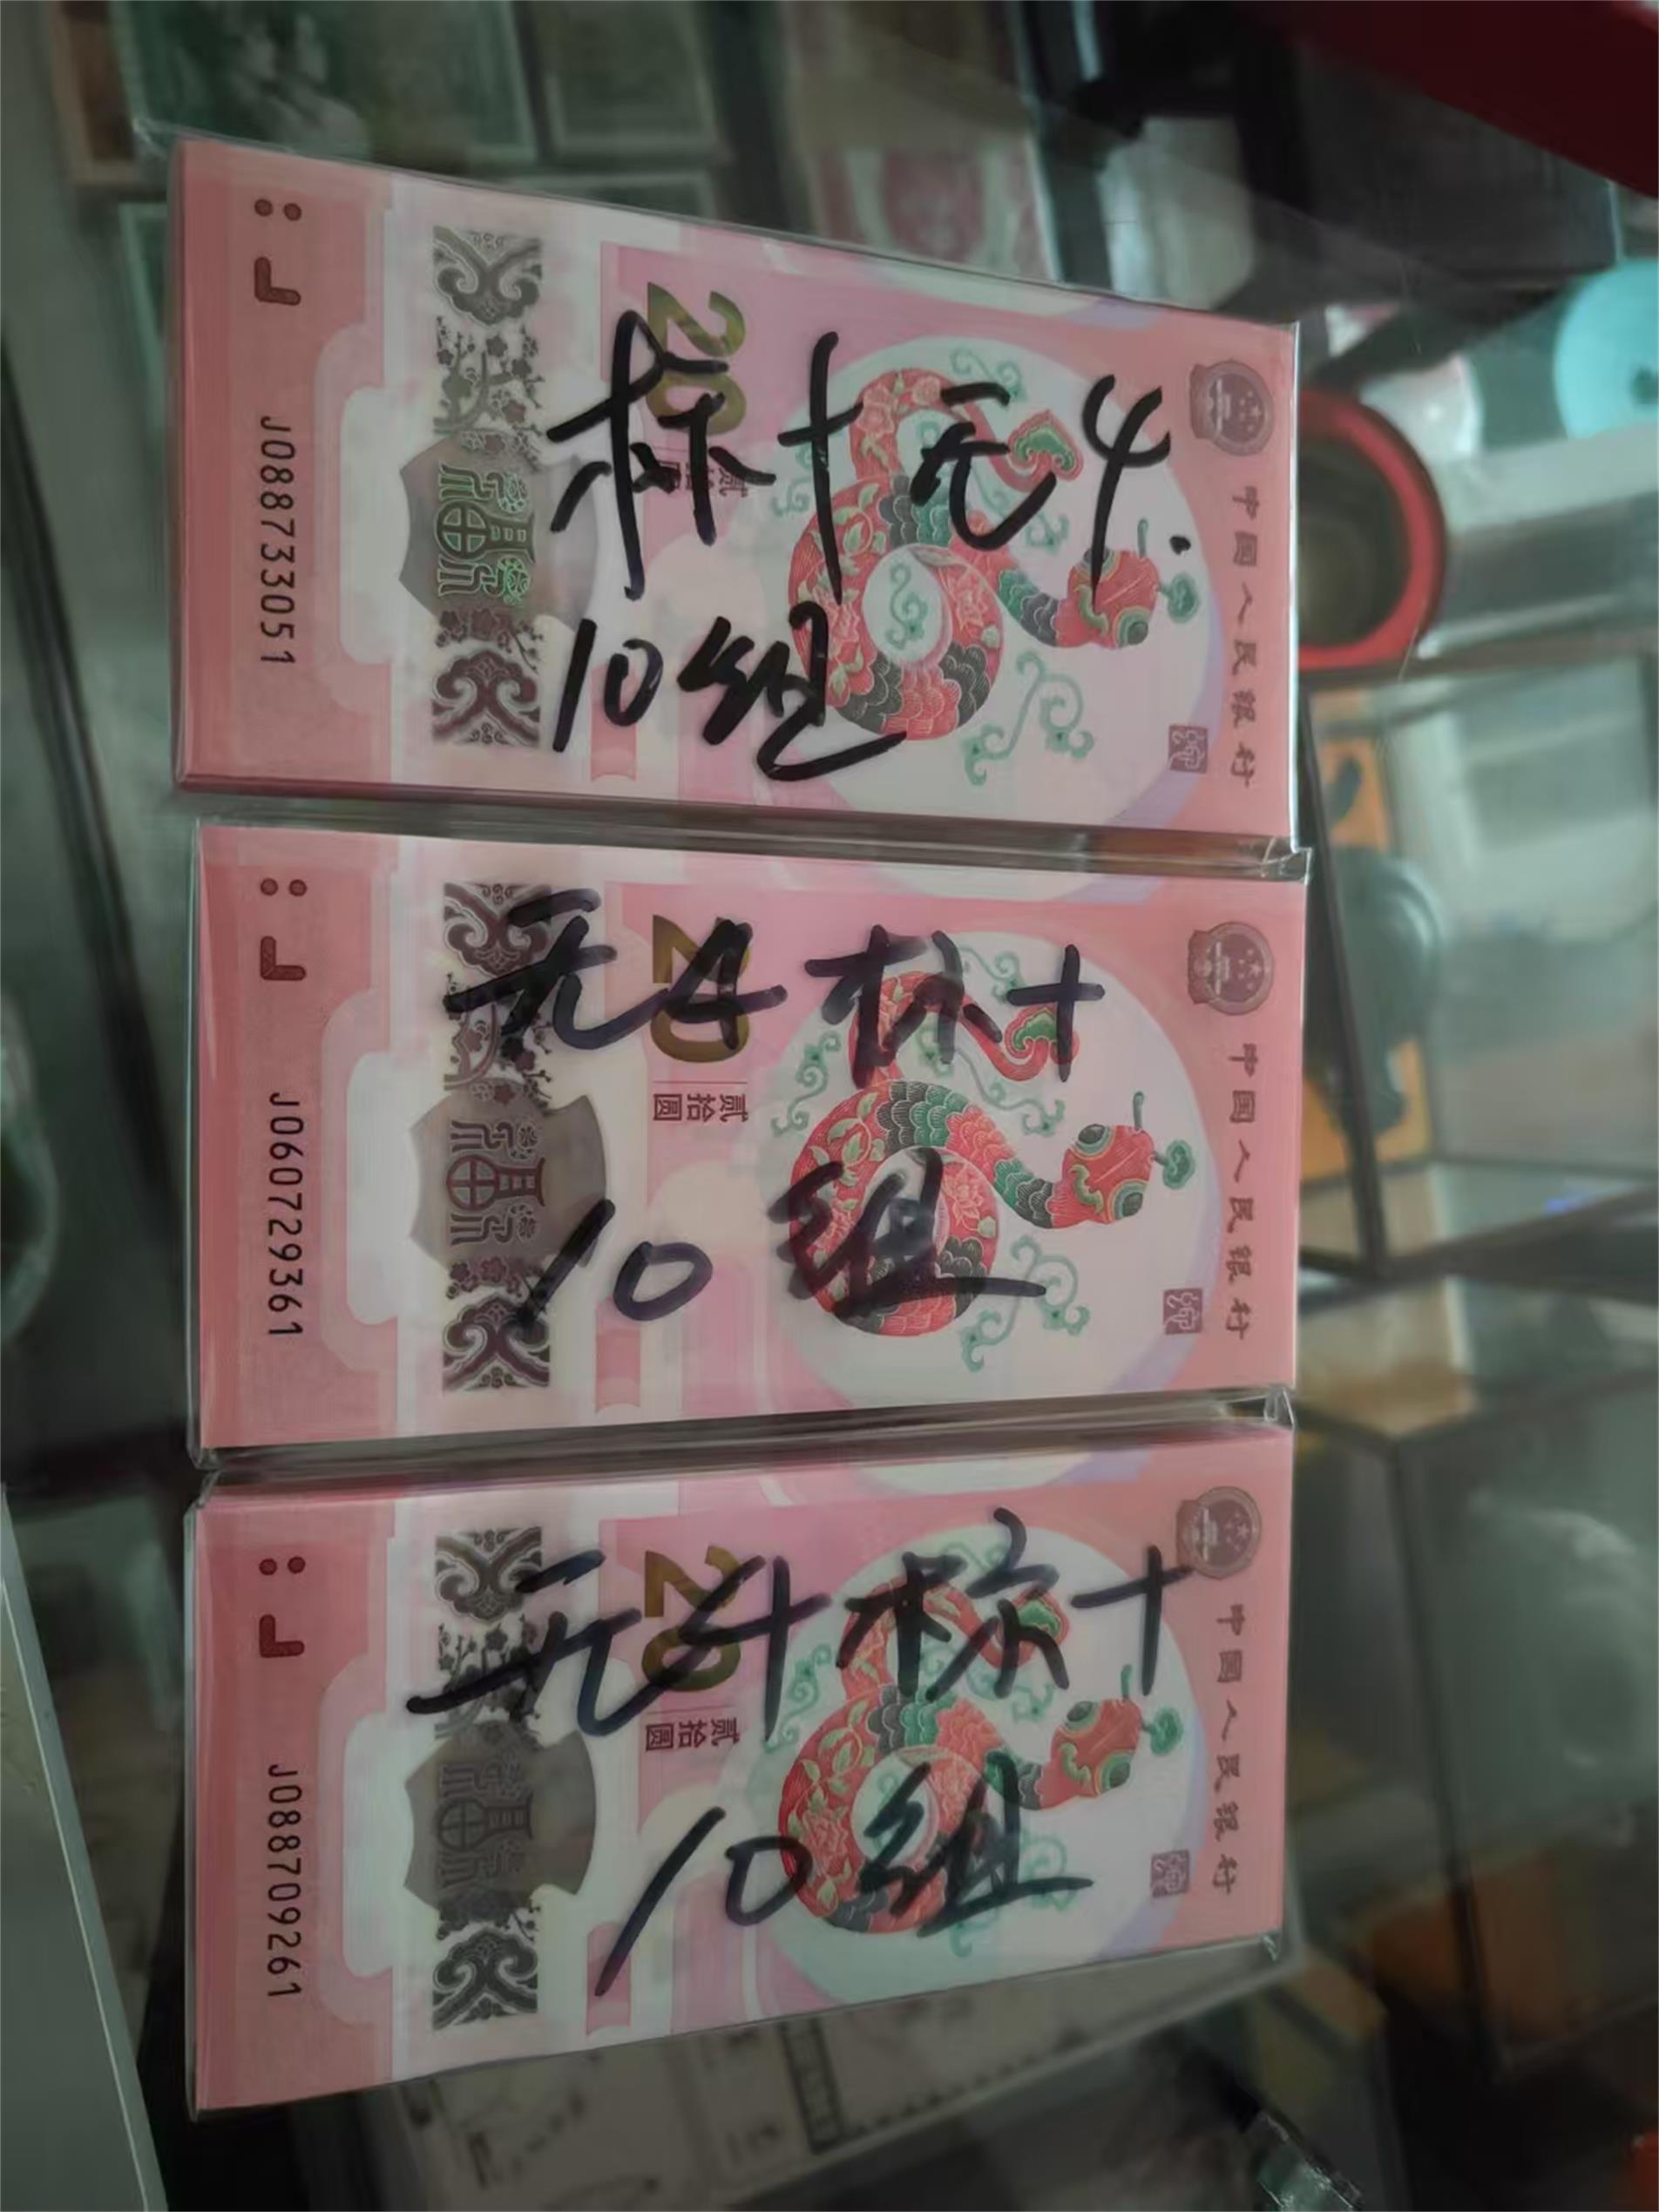 中国人民银行
20
标十无4.
10组
J088733051
中国人民银行
20
贰拾圆
无4标十
10组
J060729361
中国人民银行
20
贰拾圆
无4标十
10组
J088709261